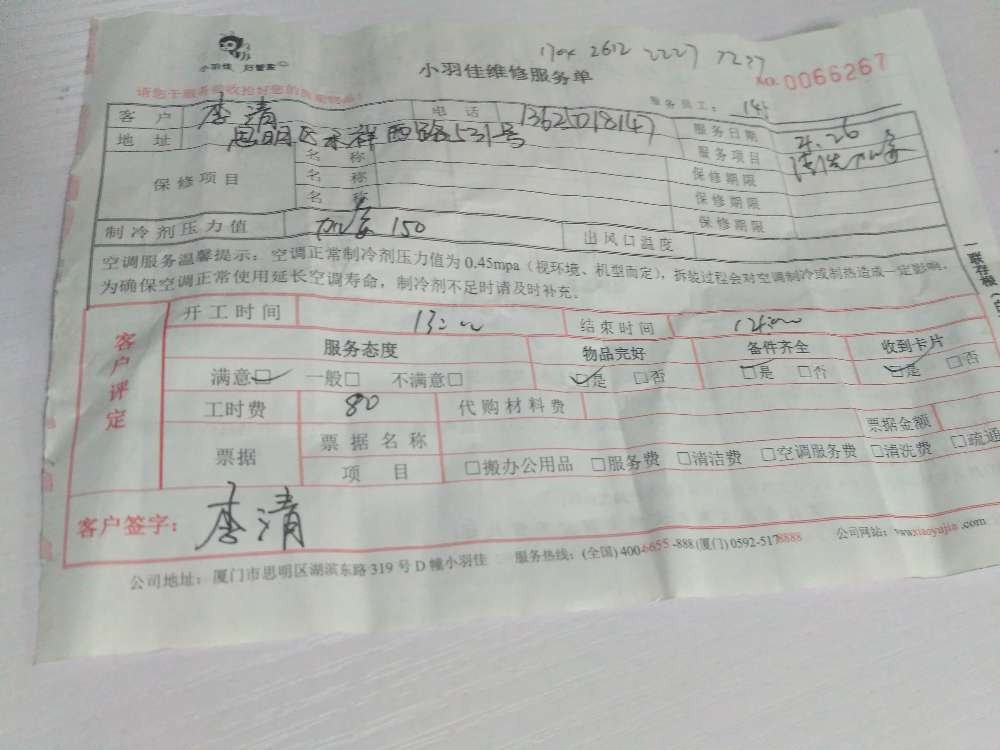 小羽佳 好管家
小羽佳维修服务单
1704 2612 2227 7277
NO. 0066267
服务员工: 141
客户 李清 电话 13625018147 服务日期 4.26
地址 思明区禾祥西路531号 服务项目
保修项目 名称 保修期限
名称 保修期限
名称 保修期限
制冷剂压力值 加氟 150 出风口温度
空调服务温馨提示:空调正常制冷剂压力值为0.45mpa(视环境、机型而定),拆装过程会对空调制冷或制热造成一定影响。
为确保空调正常使用延长空调寿命,制冷剂不足时请及时补充。
一联存根
客户评定
开工时间 13:00 结束时间 14:00
服务态度 物品完好 备件齐全 收到卡片
满意☑ 一般□ 不满意□ ☑是 □否 ☑是 □否 ☑是 □否
工时费 80 代购材料费
票据 票据名称 票据金额
项目 □搬办公用品 □服务费 □清洁费 □空调服务费 □清洗费 □疏通
客户签字: 李清
公司地址:厦门市思明区湖滨东路319号D幢小羽佳 服务热线:(全国)400-6655-888(厦门)0592-5178888 公司网站:www.xiaoyujia.com